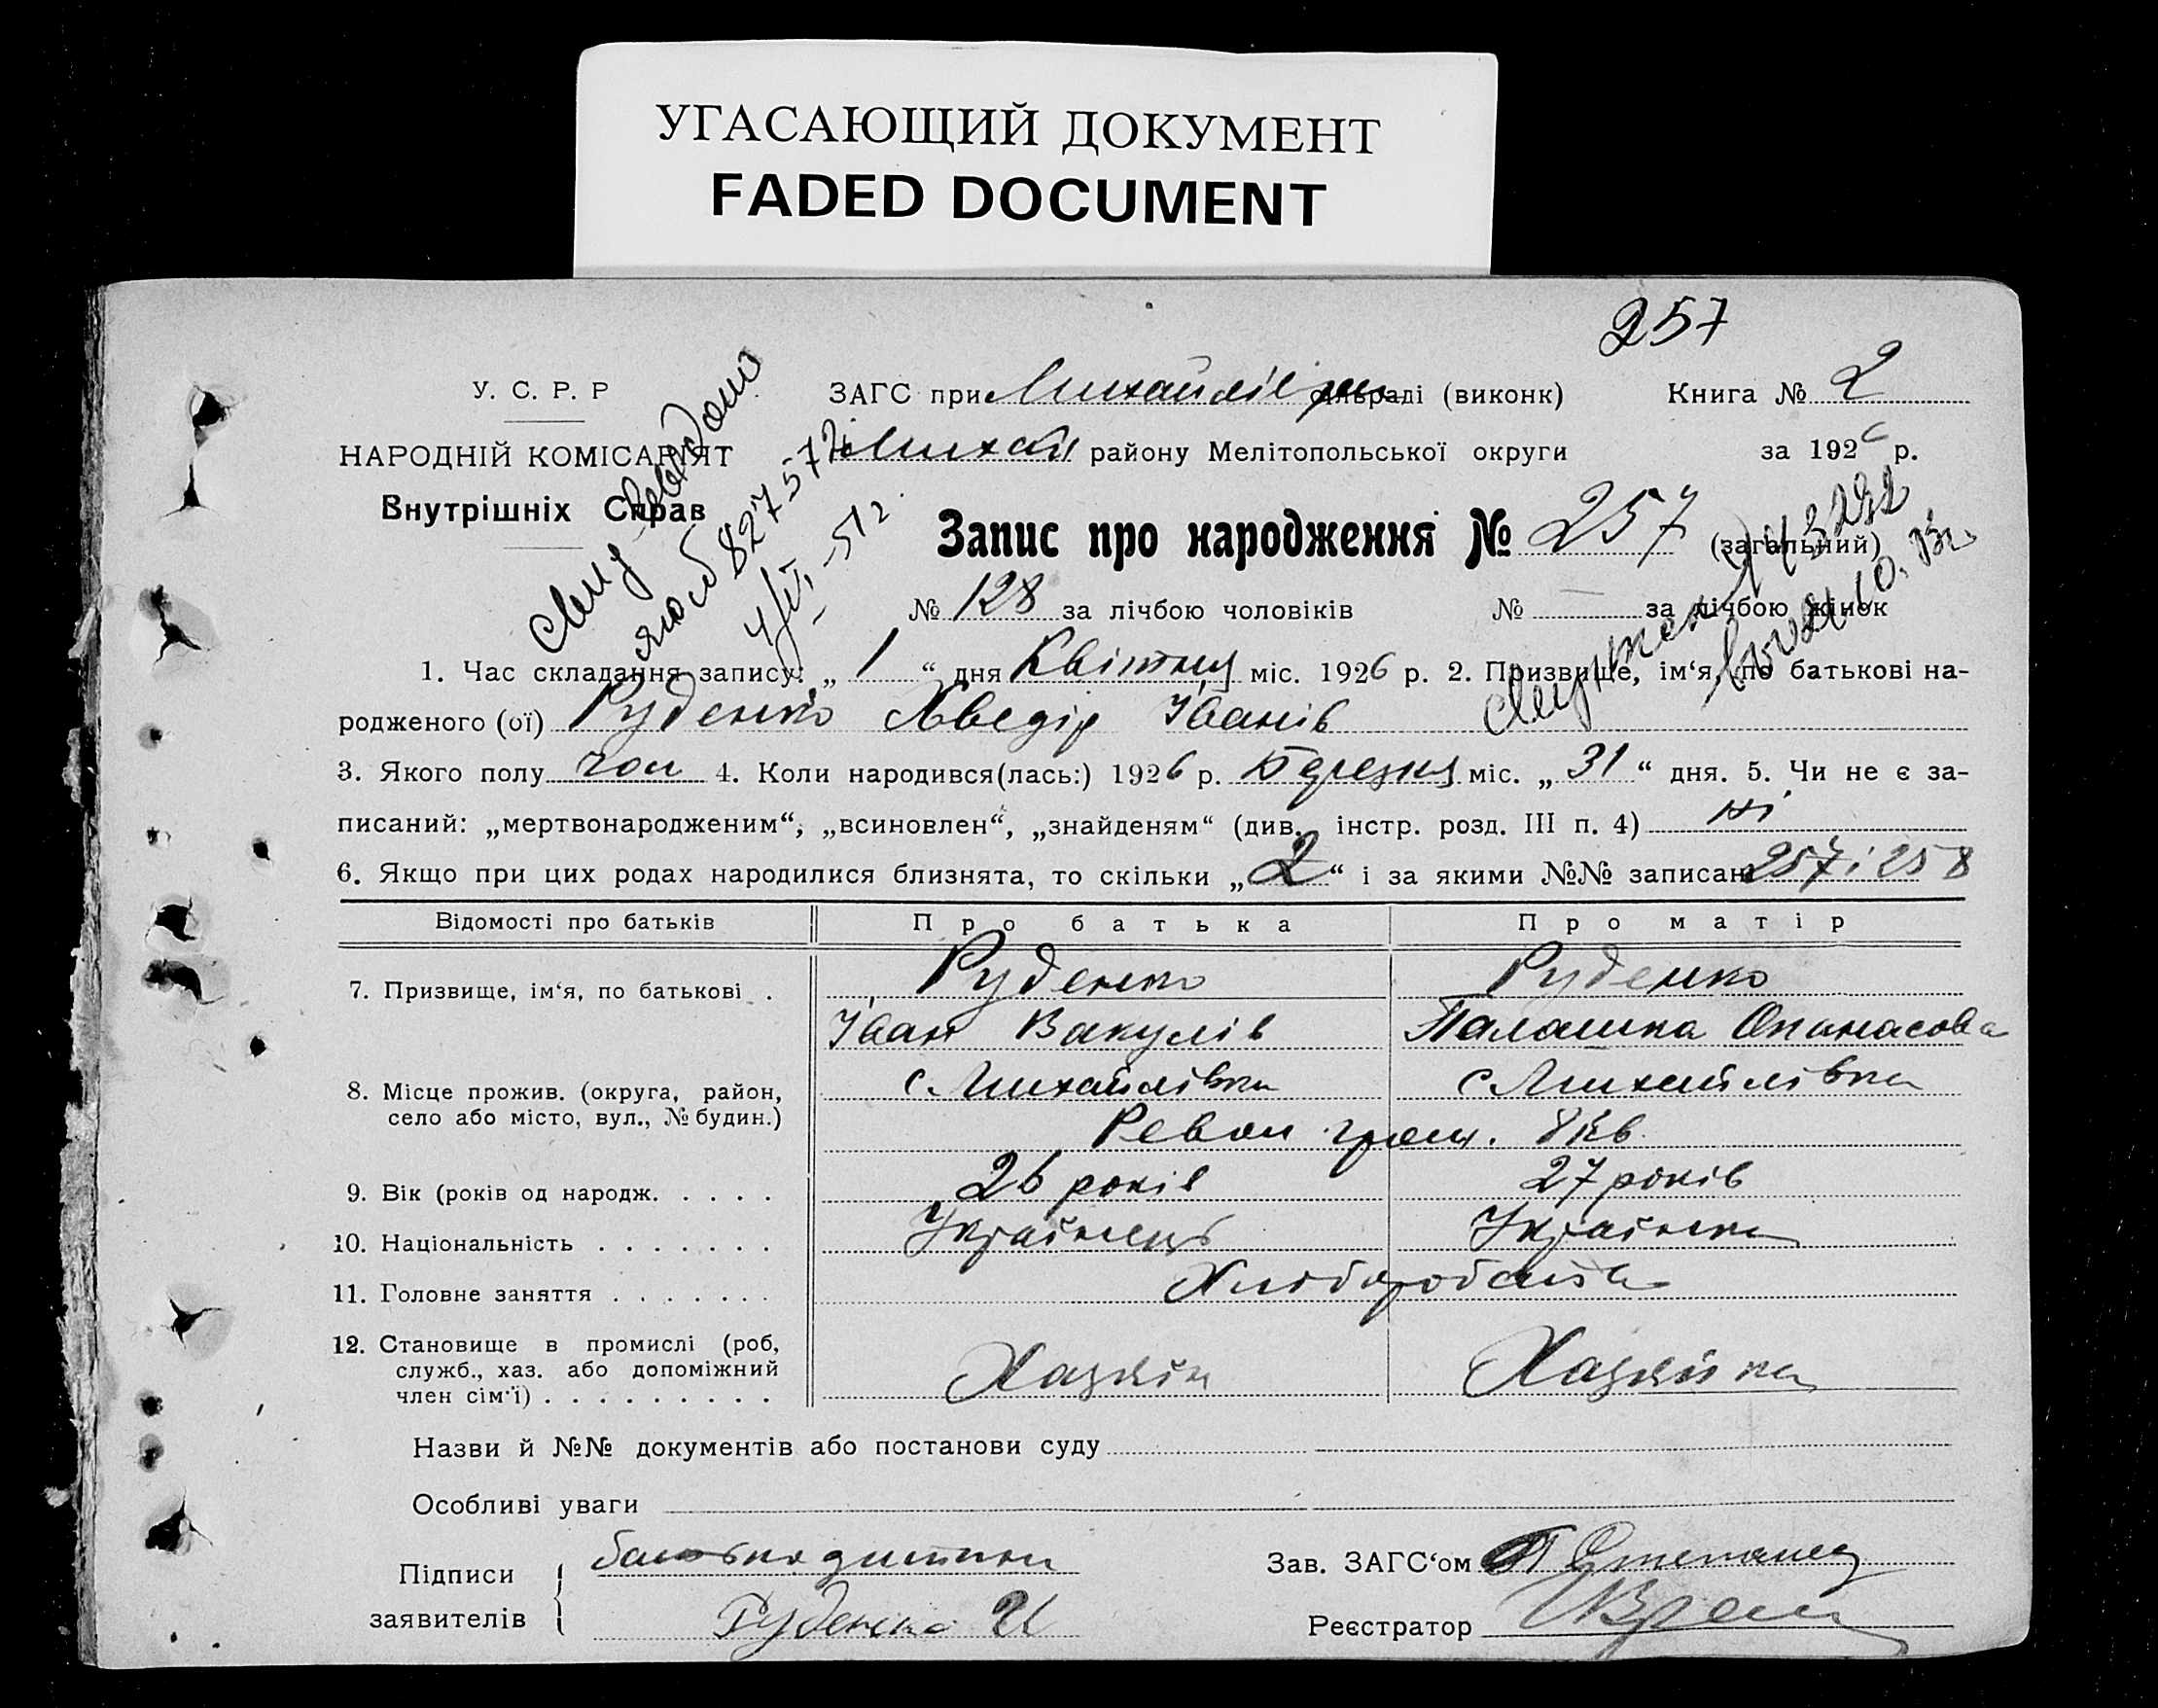 УГАСАЮЩИЙ ДОКУМЕНТ
FADED DOCUMENT
257
У. С. Р. Р
НАРОДНІЙ КОМІСАР'ЯТ
Внутрішніх Справ
ЗАГС при Михайлів сільраді (виконк)
Книга № 2
Михай району Мелітопольської округи
за 1926 р.
Запис про народження № 257 (загальний)
№ 128 за лічбою чоловіків № — за лічбою жінок
1. Час складання запису: „ 1 “ дня Квітня міс. 1926 р. 2. Призвище, ім‘я, по батькові на-
родженого (ої) Руденко Хведір Іванів
3. Якого полу чол 4. Коли народився(лась:) 1926 р. Березня міс. „ 31 “ дня. 5. Чи не є за-
писаний: „мертвонародженим“, „всиновлен“, „знайденям“ (див. інстр. розд. III п. 4) ні
6. Якщо при цих родах народилися близнята, то скільки „ 2 “ і за якими №№ записані 257 і 258
Відомості про батьків Про батька Про матір
7. Призвище, ім‘я, по батькові . Руденко Руденко
Іван Вакулів Палашка Опанасова
8. Місце прожив. (округа, район, с. Михайлівка с Михайлівка
село або місто, вул., № будин.) Револ. громад. 8 Кв.
9. Вік (років од народж. . . . . 26 років 27 років
10. Національність . . . . . . . Українець Українка
11. Головне заняття . . . . . . . Хліборобства
12. Становище в промислі (роб,
служб., хаз. або допоміжний Хазяїн Хазяйка
член сім‘ї) . . . . . . . . .
Назви й №№ документів або постанови суду
Особливі уваги
Підписи
заявителів
батько дитини
Руденко И
Зав. ЗАГС‘ом
Реєстратор